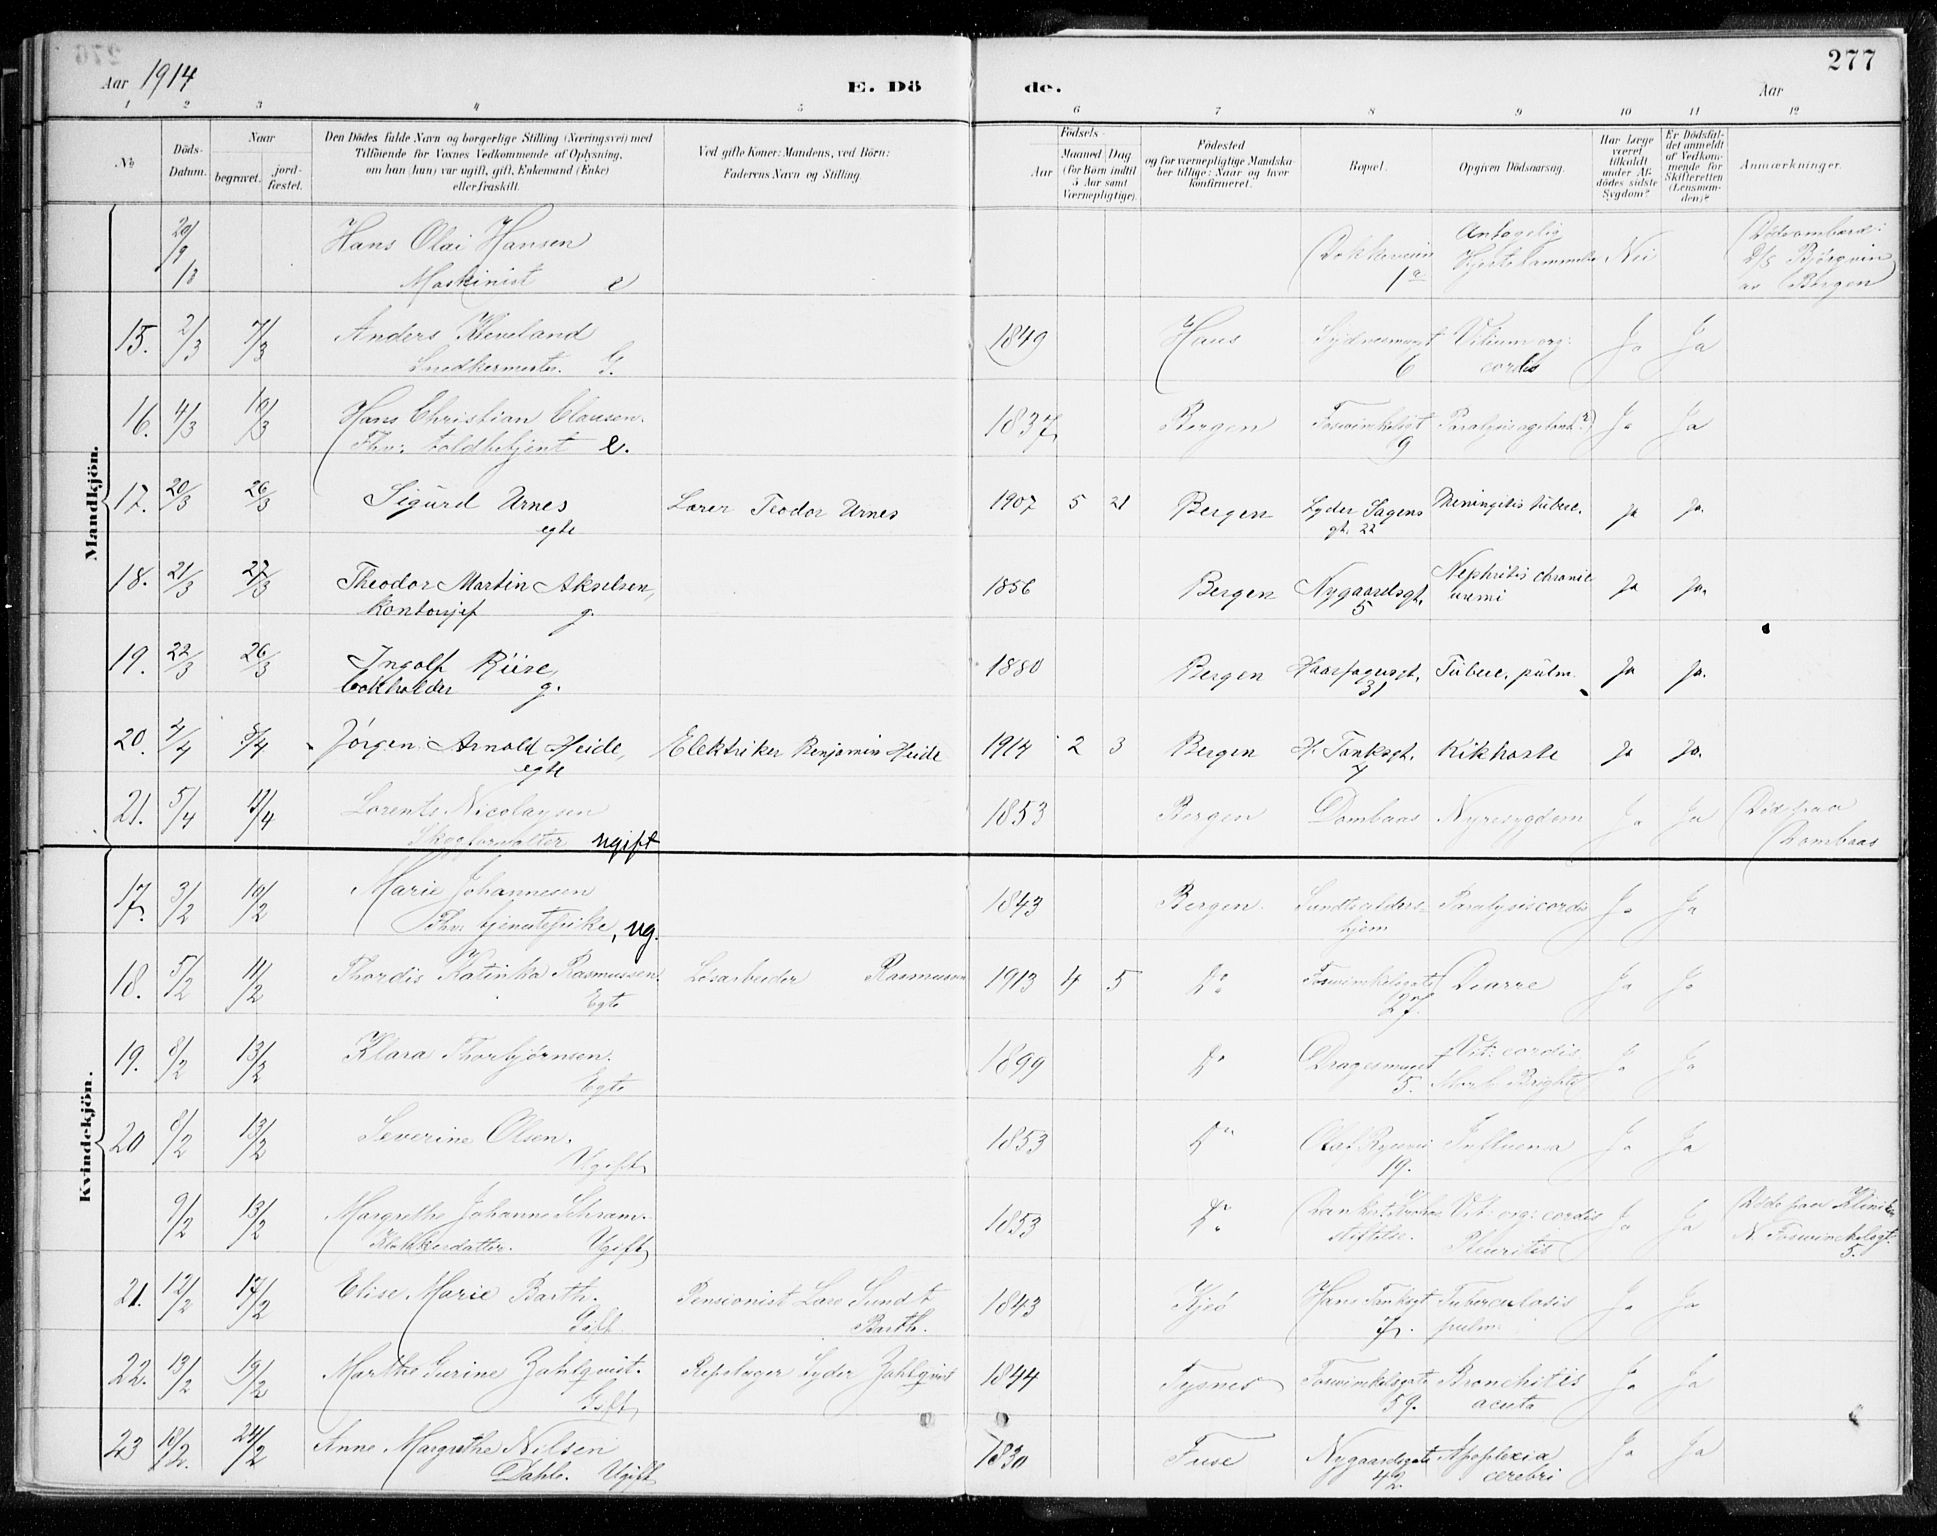 Aar 1914 E. Dö de. Aar 277
1 2 3 4 5 6 7 8 9 10 11 12
№
Döds-Datum.
Naar
begravet.
jord-fæstet.
Den Dödes fulde Navn og borgerlige Stilling (Næringsvei) med
Tilföiende for Voxnes Vedkommende af Oplysning,
om han (hun) var ugift, gift, Enkemand (Enke)
eller fraskilt.
Ved gifte Koner: Mandens, ved Börn:
Faderens Navn og Stilling.
Födsels-
Aar
Maaned Dag
(for Börn indtil
5 Aar samt
Værnepligtige).
Födested
og for værnepligtige Mandska-
ber tillige: Naar og hvor
konfirmeret.
Bopæl.
Opgiven Dödsaarsag.
Har Læge
været
tilkaldt
under Af-
dödes sidste
Sygdom?
Er Dödsfal-
det anmeldt
af Vedkom-
mende for
Skifteretten
(Lensman-
den)?
Anmærkninger.
Mandkjön.
20/9 13 Hans Olai Hansen Dokkeveien Antagelig Hjertelammelse Nei Död ombord i
Maskinist e 1a D/S Bjørgvin
av Bergen
15. 2/3 7/3 Anders Kleveland 1849 Haus Sydnesmuget Vitium org: Ja Ja
Snedkermester. G. 6 cordis
16. 4/3 10/3 Hans Christian Clausen. 1837 Bergen Foswinkelsgt Paralysis agitans(?) Ja Ja
Fhv: toldbetjent e. 9
17. 20/3 26/3 Sigurd Urnes Lærer Teodor Urnes 1907 5 21 Bergen Lyder Sagens Meningitis tuberc. Ja Ja.
egte gt. 22
18. 21/3 27/3 Theodor Martin Akselsen, 1856 Bergen Nygaardsgt. Nephritis chronic Ja Ja.
Kontorsjef g. 5 uremi
19. 22/3 26/3 Ingolf Riise, 1880 Bergen Haarfagersgt. Tuberc. pulm. Ja Ja.
bokholder g. 31
20. 2/4 8/4 Jörgen Arnold Heide, Elektriker Benjamin Heide 1914 2 3 Bergen H. Tanksgt. Kikhoste Ja Ja.
egte 7
21. 5/4 11/4 Lorents Nicolaysen 1853 Bergen Dombaas Nyresygdom Ja Ja Död paa
Skogforvalter ugift Dombaas
Kvindekjön.
17. 3/2 10/2 Marie Johannesen 1843 Bergen. Sundts alders- Paralysis cordis Ja Ja
Fhv: tjenestepike, ug. hjem
18. 5/2 11/2 Thordis Katinka Rasmussen. Løsarbeider Rasmussen 1913 4 5 Do Foswinkelsgate Diarre Ja Ja
Egte 27.
19. 8/2 13/2 Klara Thorbjørnsen. 1899 Do Dragesmuget Vit: cordis Ja Ja
Egte 5. Morb. Brightii
20 8/2 13/2 Severine Olsen. 1853 Do Olaf Ryesvei Influensa Ja Ja
Ugift 19.
9/2 13/2 Margrethe Johanne Schram. 1853 Do Dankert Krohns Vit: org: cordis Ja Ja Døde paa Kliniken
Klokkerdatter. Ugift stiftelse. Pleuritis N. Foswinckelsgt.
5.
21. 12/2 17/2 Elise Marie Barth. Pensionist Lars Sundt 1843 Kjeö Hans Tanksgt Tuberculosis Ja Ja
Gift. Barth. 7. pulm:
22. 13/2 19/2 Marthe Gurine Zahlqvist. Repslager Lyder Zahlqvist 1844 Tysnes Foswinckelsgate Bronchitis Ja Ja
Gift 59. acuta
23 18/2. 24/2 Anne Margrethe Nilsen 1830 Fuse Nygaardsgate Apoplexia Ja Ja
Dahle. Ugift 42. cerebri